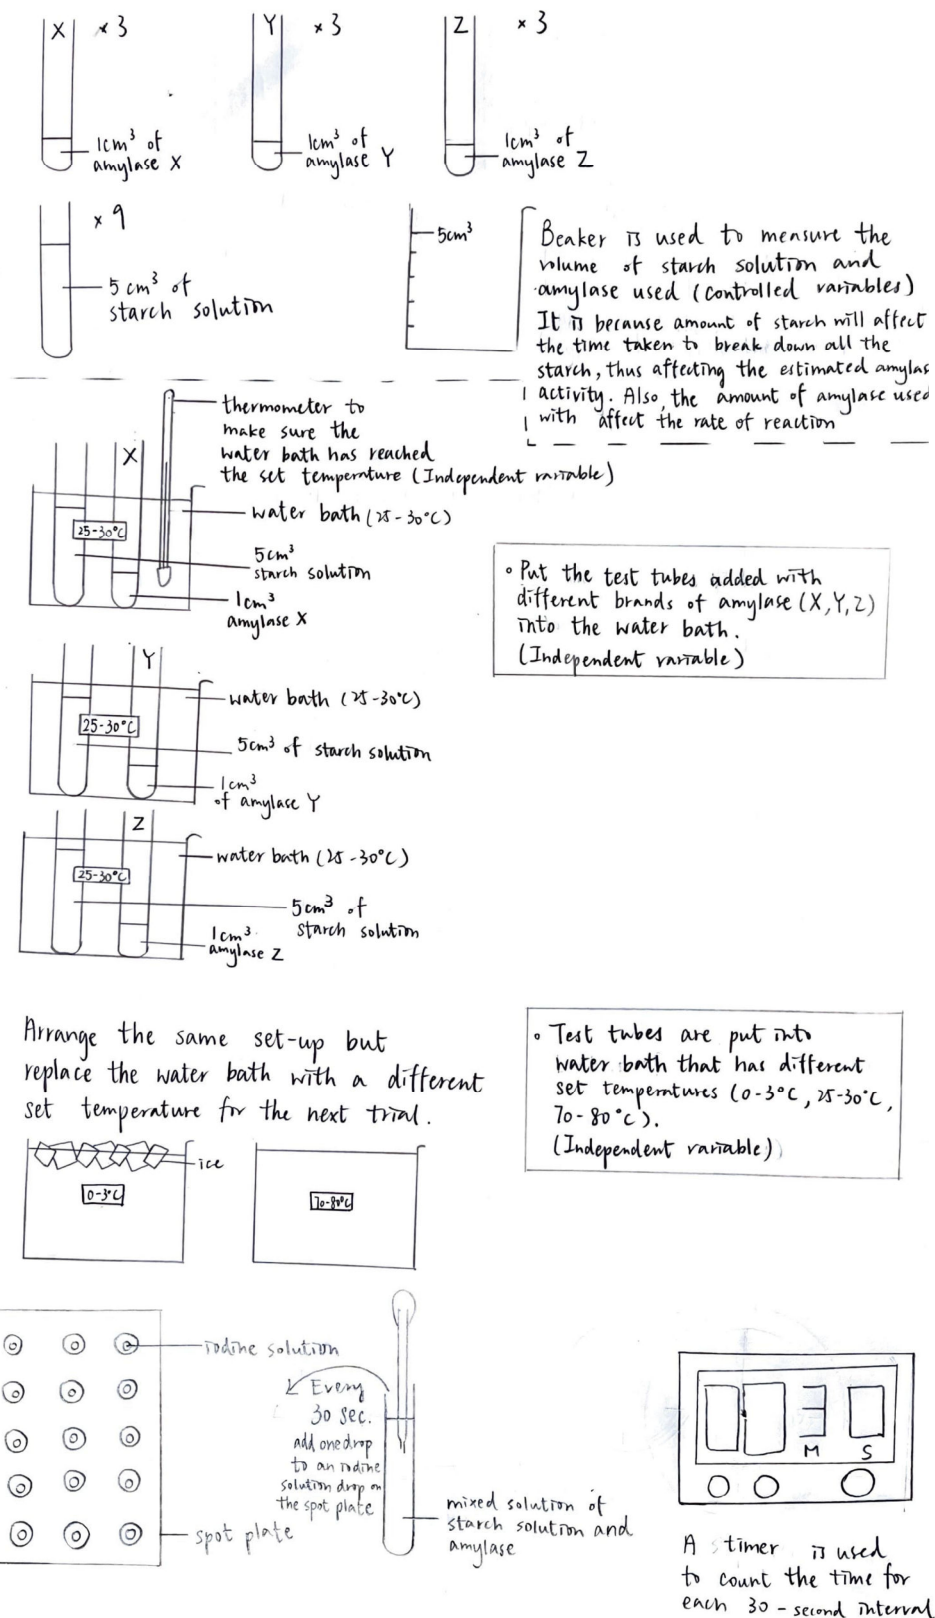 X × 3
Y × 3
Z × 3
1cm³ of
amylase X
1cm³ of
amylase Y
1cm³ of
amylase Z
× 9
5 cm³ of
starch solution
5cm³
Beaker is used to measure the
volume of starch solution and
amylase used (controlled variables)
It is because amount of starch will affect
the time taken to break down all the
starch, thus affecting the estimated amylas
activity. Also, the amount of amylase used
with affect the rate of reaction
thermometer to
make sure the
water bath has reached
the set temperature (Independent variable)
X
water bath (25-30°C)
25-30°C
5cm³
starch solution
1cm³
amylase X
• Put the test tubes added with
different brands of amylase (X,Y,Z)
into the water bath.
(Independent variable)
Y
water bath (25-30°C)
25-30°C
5cm³ of starch solution
1cm³
of amylase Y
Z
water bath (25-30°C)
25-30°C
5cm³ of
starch solution
1cm³
amylase Z
Arrange the same set-up but
replace the water bath with a different
set temperature for the next trial.
• Test tubes are put into
water bath that has different
set temperatures (0-3°C, 25-30°C,
70-80°C).
(Independent variable)
ice
0-3°C
70-80°C
iodine solution
Every
30 sec.
add one drop
to an iodine
solution drop on
the spot plate
spot plate
mixed solution of
starch solution and
amylase
00 30
M S
A timer is used
to count the time for
each 30-second interval